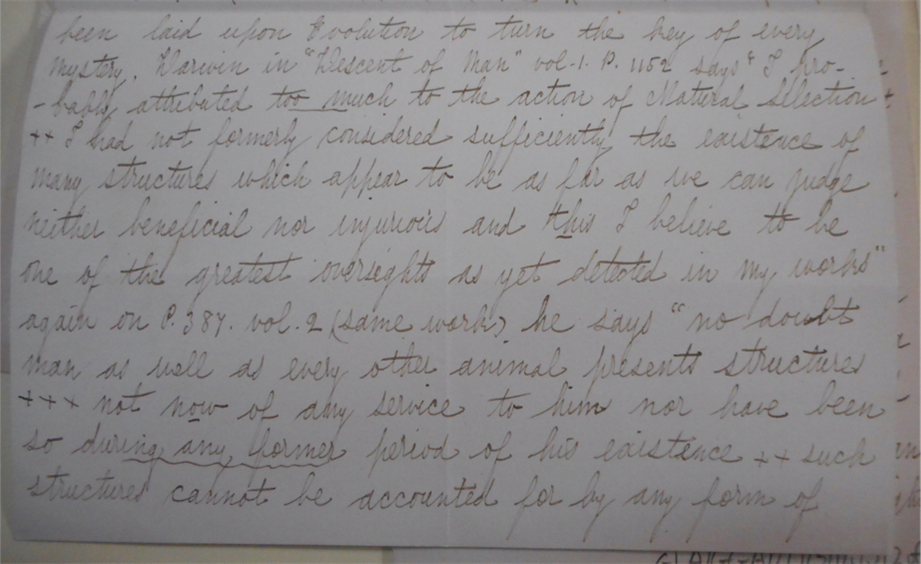 been laid upon Evolution to turn the key of every
mystery. Darwin in "Descent of Man" vol-1. P. 1152 says "I pro-
-bably attributed too much to the action of Natural Selection
++ I had not formerly considered sufficiently the existence of
many structures which appear to be as far as we can judge
neither beneficial nor injurious and this I believe to be
one of the greatest oversights as yet detected in my works"
again on P. 387. vol. 2 (same work) he says "no doubt
man as well as every other animal presents structures
+++ not now of any service to him nor have been
so during any former period of his existence ++ such
structures cannot be accounted for by any form of